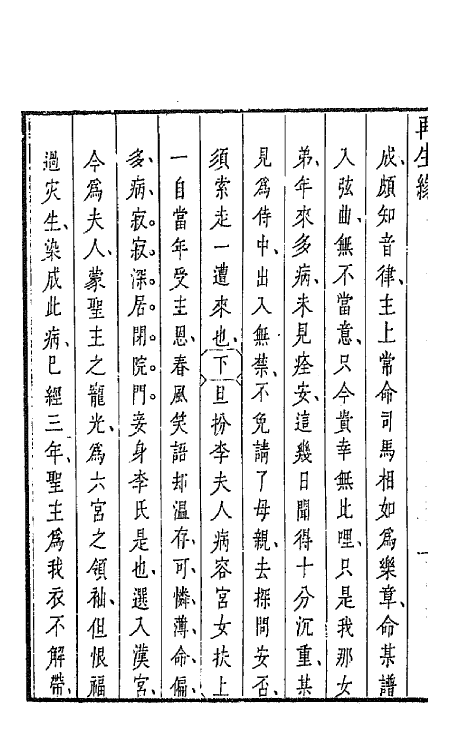 再生緣
成、頗知音律、主上常命司馬相如爲樂章、命某譜
入弦曲、無不當意、只今貴幸無比哩、只是我那女
弟、年來多病、未見痊安、這幾日聞得十分沉重、某
見爲侍中、出入無禁、不免請了母親、去探問安否、
須索走一遭來也、下旦扮李夫人病容宮女扶上
一自當年受主恩、春風笑語却溫存、可憐薄命偏
多病、寂寂深居閉院門。妾身李氏是也、選入漢宮、
今爲夫人、蒙聖主之寵光、爲六宮之領袖、但恨福
過災生、染成此病、已經三年、聖主爲我衣不解帶、